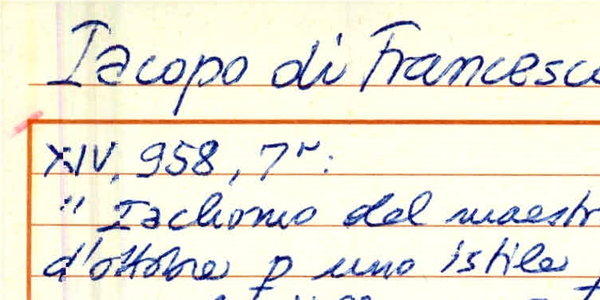 Iacopo di Francesco
XIV, 958, 7r:
" Iachomo del maestr
d'ottobre p uno istile